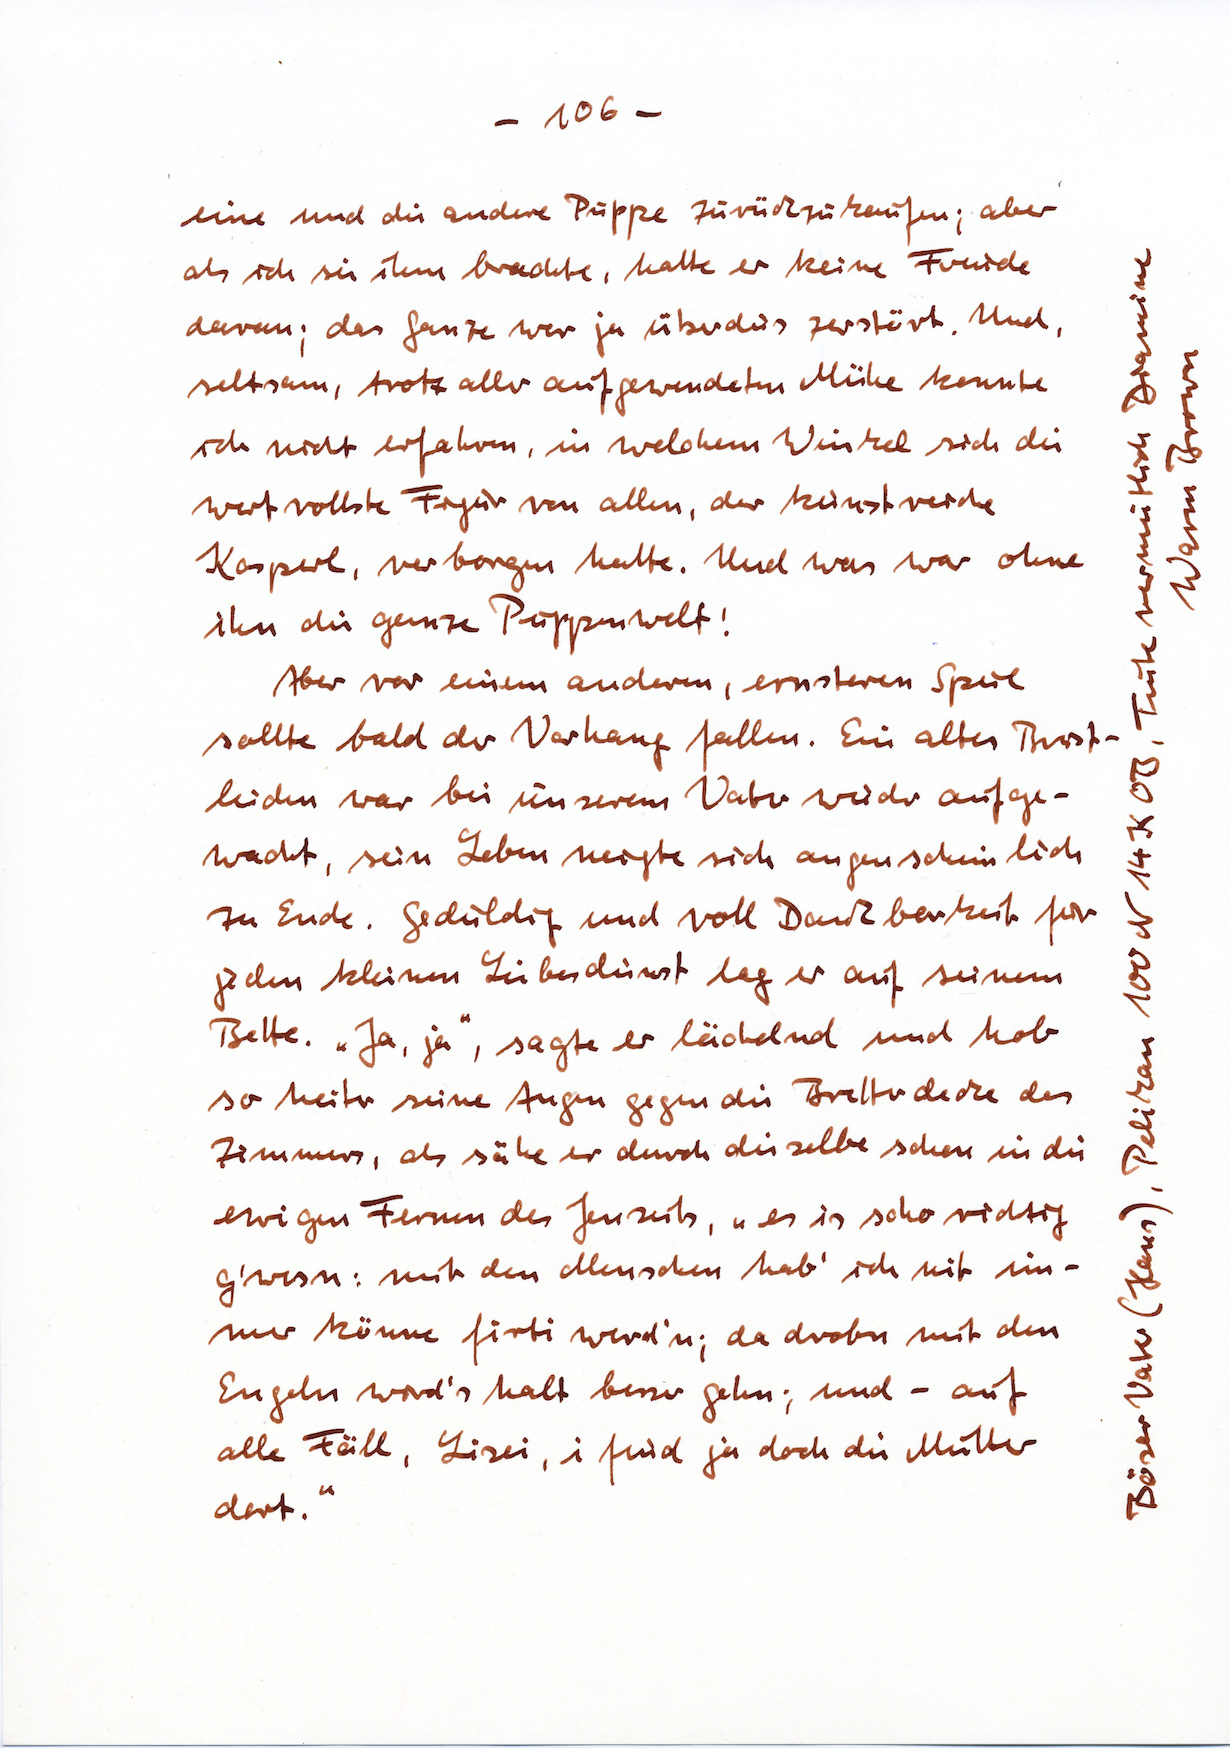 - 106 -
eine und die andere Puppe zurückzukaufen; aber
als ich sie ihm brachte, hatte er keine Freude
daran; das Ganze war ja überdies zerstört. Und,
seltsam, trotz aller aufgewendeten Mühe konnte
ich nicht erfahren, in welchem Winkel sich die
wertvollste Figur von allen, der kunstreiche
Kasperl, verborgen hatte. Und was war ohne
ihn die ganze Puppenwelt!
Aber vor einem anderen, ernsteren Spiel
sollte bald der Vorhang fallen. Ein altes Brust-
leiden war bei unserem Vater wieder aufge-
wacht, sein Leben neigte sich augenscheinlich
zu Ende. Geduldig und voll Dankbarkeit für
jeden kleinen Liebesdienst lag er auf seinem
Bette. „Ja, ja“, sagte er lächelnd und hob
so heiter seine Augen gegen die Bretterdecke des
Zimmers, als sähe er durch dieselbe schon in die
ewigen Fernen des Jenseits, „es is scho richtig
g'wesn: mit den Menschen hab' ich nit im-
mer könne firti werd'n; da drobn mit den
Engeln wird's halt besser gehn; und - auf
alle Fäll, Lisei, i find ja doch die Mutter
dort.“
Böser Vater (Hans), Pelikan 100 N 14 K OB, Tinte vermutlich Diamine
Warm Brown